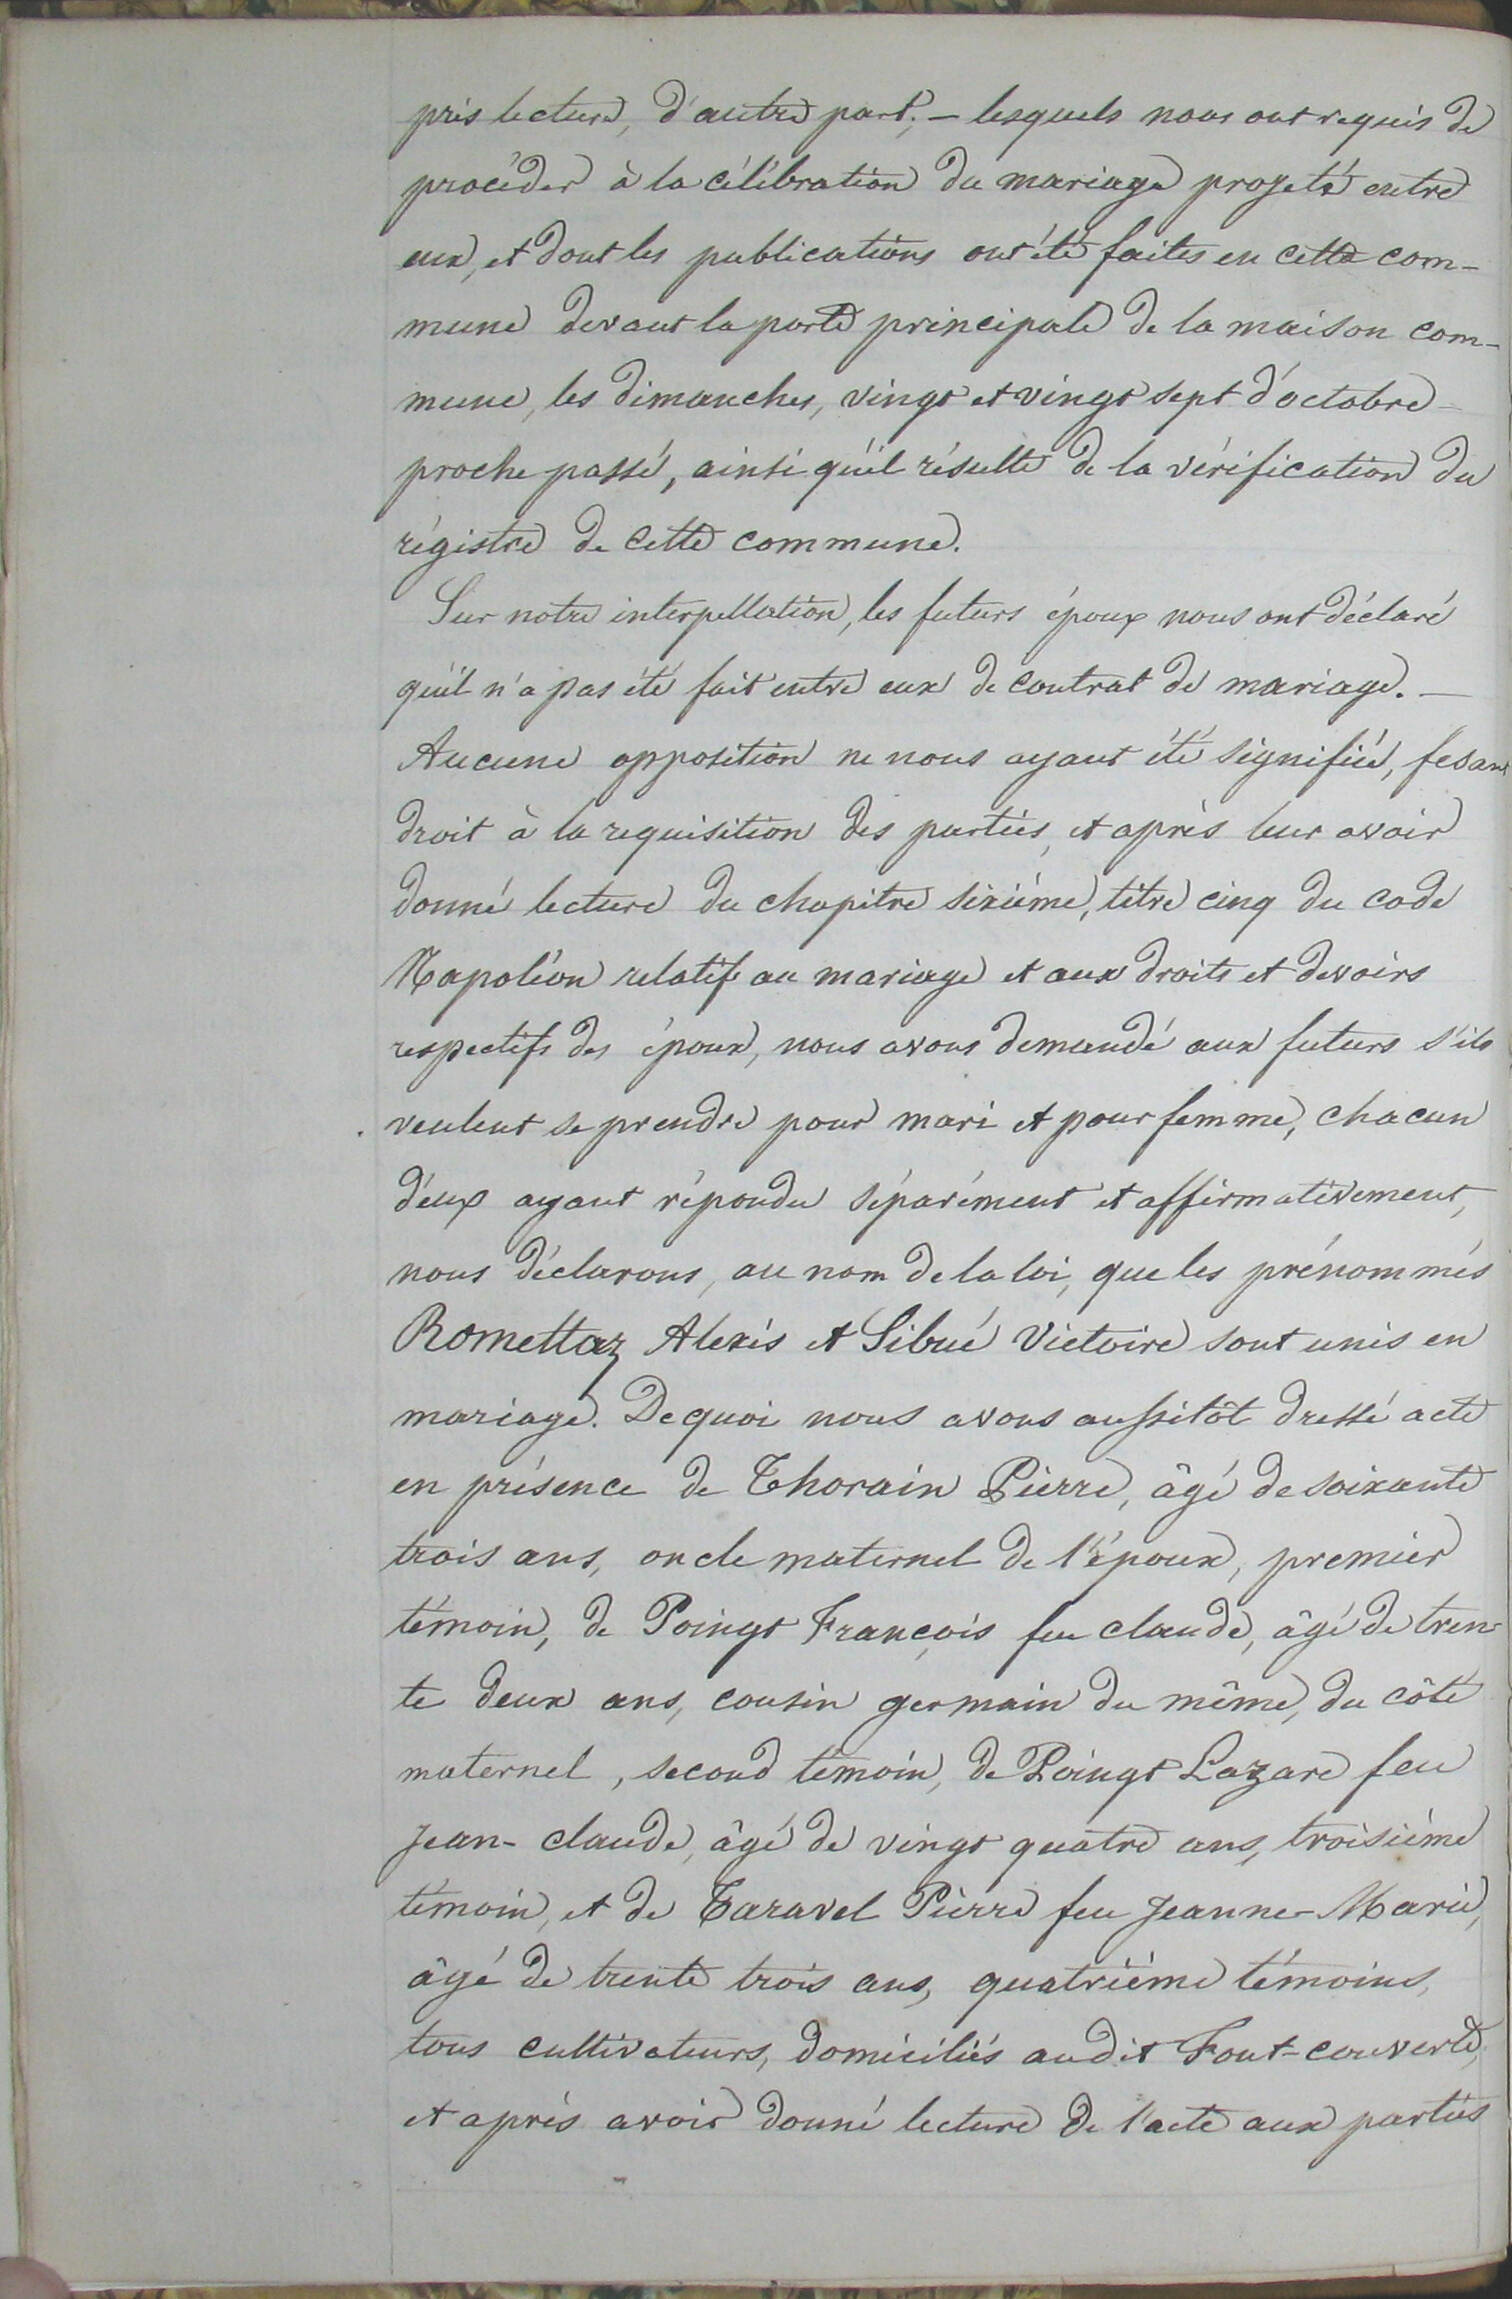 pris lecture, d'autre part; — lesquels nous ont requis de
procéder à la célébration du mariage projeté entre
eux, et dont les publications ont été faites en cette com-
mune devant la porte principale de la maison com-
mune, les dimanches, vingt et vingt sept d'octobre
proche passé, ainsi qu'il résulte de la vérification du
régistre de cette commune.
Sur notre interpellation, les futurs époux nous ont déclaré
qu'il n'a pas été fait entre eux de contrat de mariage. —
Aucune opposition ne nous ayant été signifiée, fesant
droit à la requisition des parties, et après leur avoir
donné lecture du chapitre sixième, titre cinq du code
Napoléon relatif au mariage et aux droits et devoirs
respectifs des époux, nous avons demandé aux futurs s'ils
veulent se prendre pour mari et pour femme, chacun
d'eux ayant répondu séparément et affirmativement,
nous déclarons, au nom de la loi, que les prénommés
Romettaz Alexis et Sibué Victoire sont unis en
mariage. De quoi nous avons aussitôt dressé acte
en présence de Thorain Pierre, âgé de soixante
trois ans, oncle maternel de l'époux, premier
témoin, de Poingt François feu claude, âgé de tren-
te deux ans, cousin germain du même, du côté
maternel, second témoin, de Poingt Lazare feu
Jean-claude, âgé de vingt quatre ans, troisième
témoin, et de Taravel Pierre feu Jeanne-Marie,
âgé de trente trois ans, quatrième témoins,
tous cultivateurs, domiciliés audit Font-couverte,
et après avoir donné lecture de l'acte aux parties